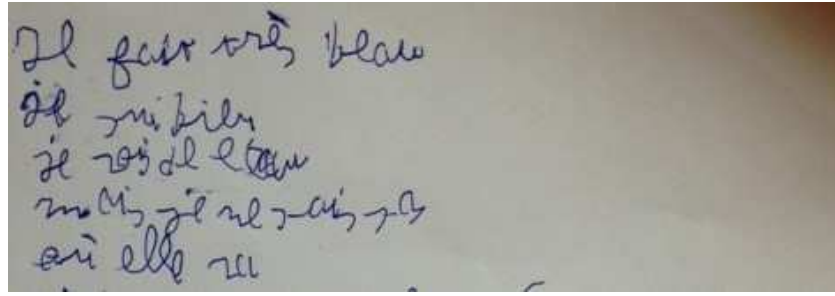 Il fait très beau
je suis bien
je vois de l'eau
mais je ne sais pas
où elle va